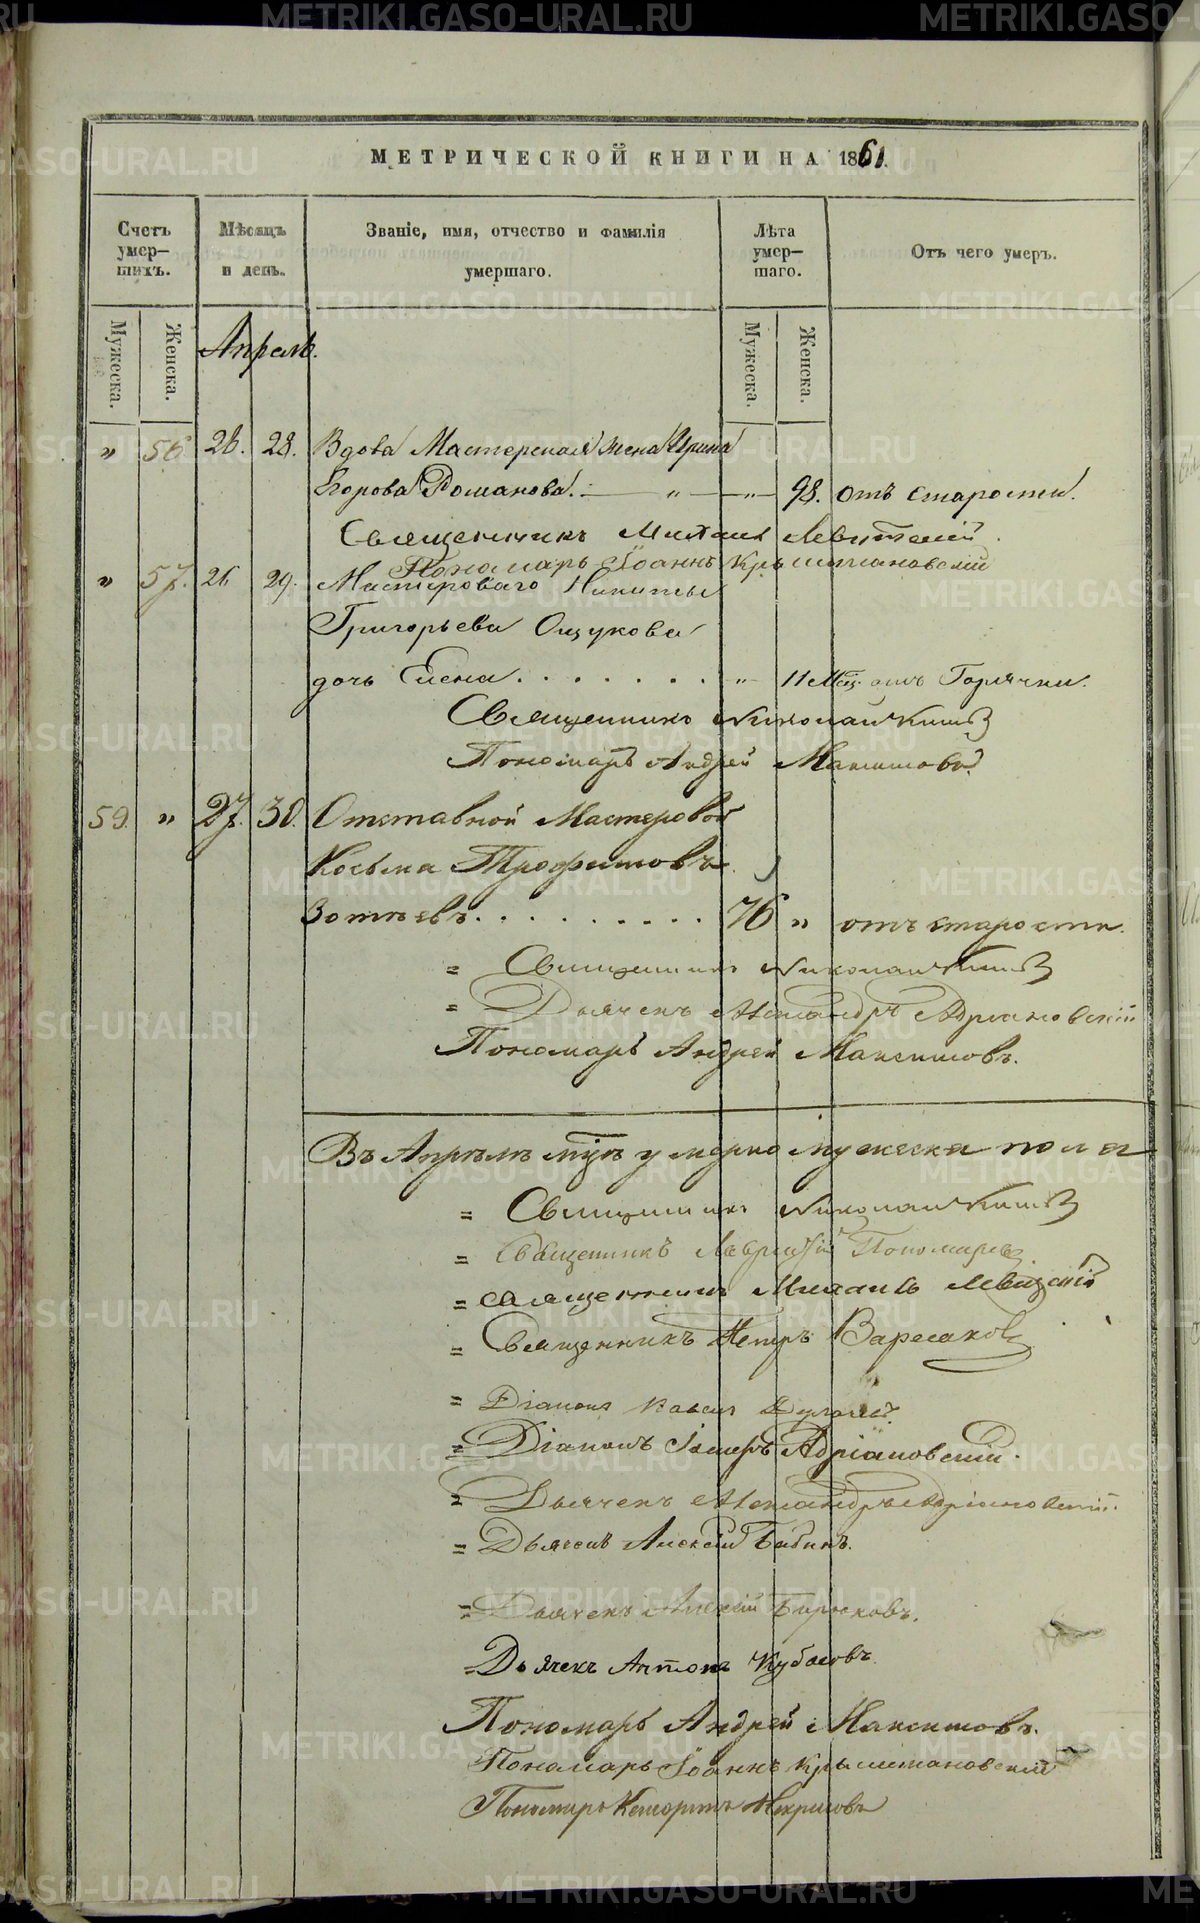 МЕТРИЧЕСКОЙ КНИГИ НА 1861.
Счетъ умер—шихъ.
Мѣсяцъ и день.
Званіе, имя, отчество и фамилія умершаго.
Лѣта умер—шаго.
Отъ чего умеръ.
Мужеска.
Женска.
Апрель.
Мужеска.
Женска.
" 56 26. 28. Вдова Мастерская жена Ирина
Егорова Романова. — " — " — 98. отъ старости.
Священникъ Михаилъ Левитскій.
Пономарь Іоаннъ Крыштановскій
" 57. 26 29. Мастероваго Никиты
Григорьева Ощукова
дочь Елена. . . . . . . . " 11 Мѣц. отъ Горячки.
Священникъ Николай
Пономарь Андрей Максимовъ.
59. " 27. 30. Отставной Мастеровой
Косьма Трофимовъ
Зотѣевъ. . . . . . . . . . 76 " отъ старости.
= Священникъ Николай
= Дьячекъ Александръ Адріановскій
Пономарь Андрей Максимовъ.
Въ Апрѣлѣ умерло мужеска пола
= Священникъ Николай
= Священникъ Лаврентій Пономаревъ
= священникъ Михаилъ Левицкій
= Священникъ Петръ
= Діаконъ
= Діаконъ Адріановскій.
= Дьячекъ Александръ Адріановскій.
= Дьячекъ Алексѣй Бабинъ.
= Дьячекъ Алексѣй Бирюковъ.
= Дьячекъ Антонъ Кубасовъ
Пономарь Андрей Максимовъ.
Пономарь Іоаннъ Крыштановскій
Пономарь Некрасовъ
METRIKI.GASO-URAL.RU